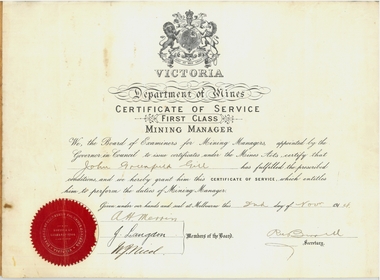 VICTORIA
Department of Mines
CERTIFICATE OF SERVICE
FIRST CLASS
MINING MANAGER
We, the Board of Examiners for Mining Managers, appointed by the
Governor in Council to issue certificates under the Mines Acts, certify that
John Gill has fulfilled the prescribed
conditions, and we hereby grant him this CERTIFICATE OF SERVICE, which entitles
him to perform the duties of Mining Manager.
Given under our hands and seal at Melbourne the 2nd day of Nov
A H Merrin
J Langdon
W Nicol
Members of the Board.
Secretary.